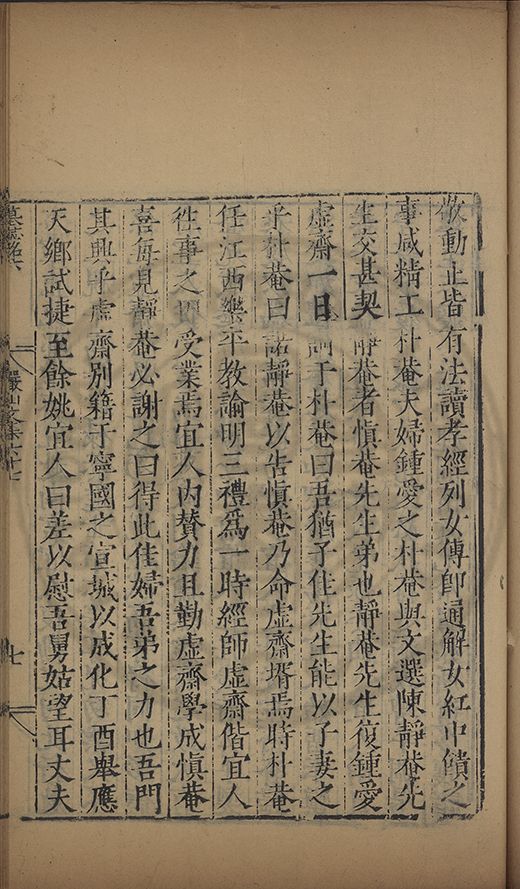 敬動止皆有法讀孝經列女傳即通解女紅中饋之
事咸精工朴菴夫婦鍾愛之朴菴與文選陳靜菴先
生交甚契靜菴者愼菴先生弟也靜菴先生復鍾愛
虛齋一日謂于朴菴曰吾猶子佳先生能以子妻之
乎朴菴曰諾靜菴以告愼菴乃命虛齋壻焉時朴菴
任江西樂平教諭明三禮爲一時經師虛齋偕宜人
徃事之受業焉宜人内賛力且勤虛齋學成愼菴
喜每見靜菴必謝之曰得此佳婦吾弟之力也吾門
其興乎虛齋別籍于寧國之宣城以成化丁酉舉應
天鄉試捷至餘姚宜人曰差以慰吾舅姑望耳丈夫
七